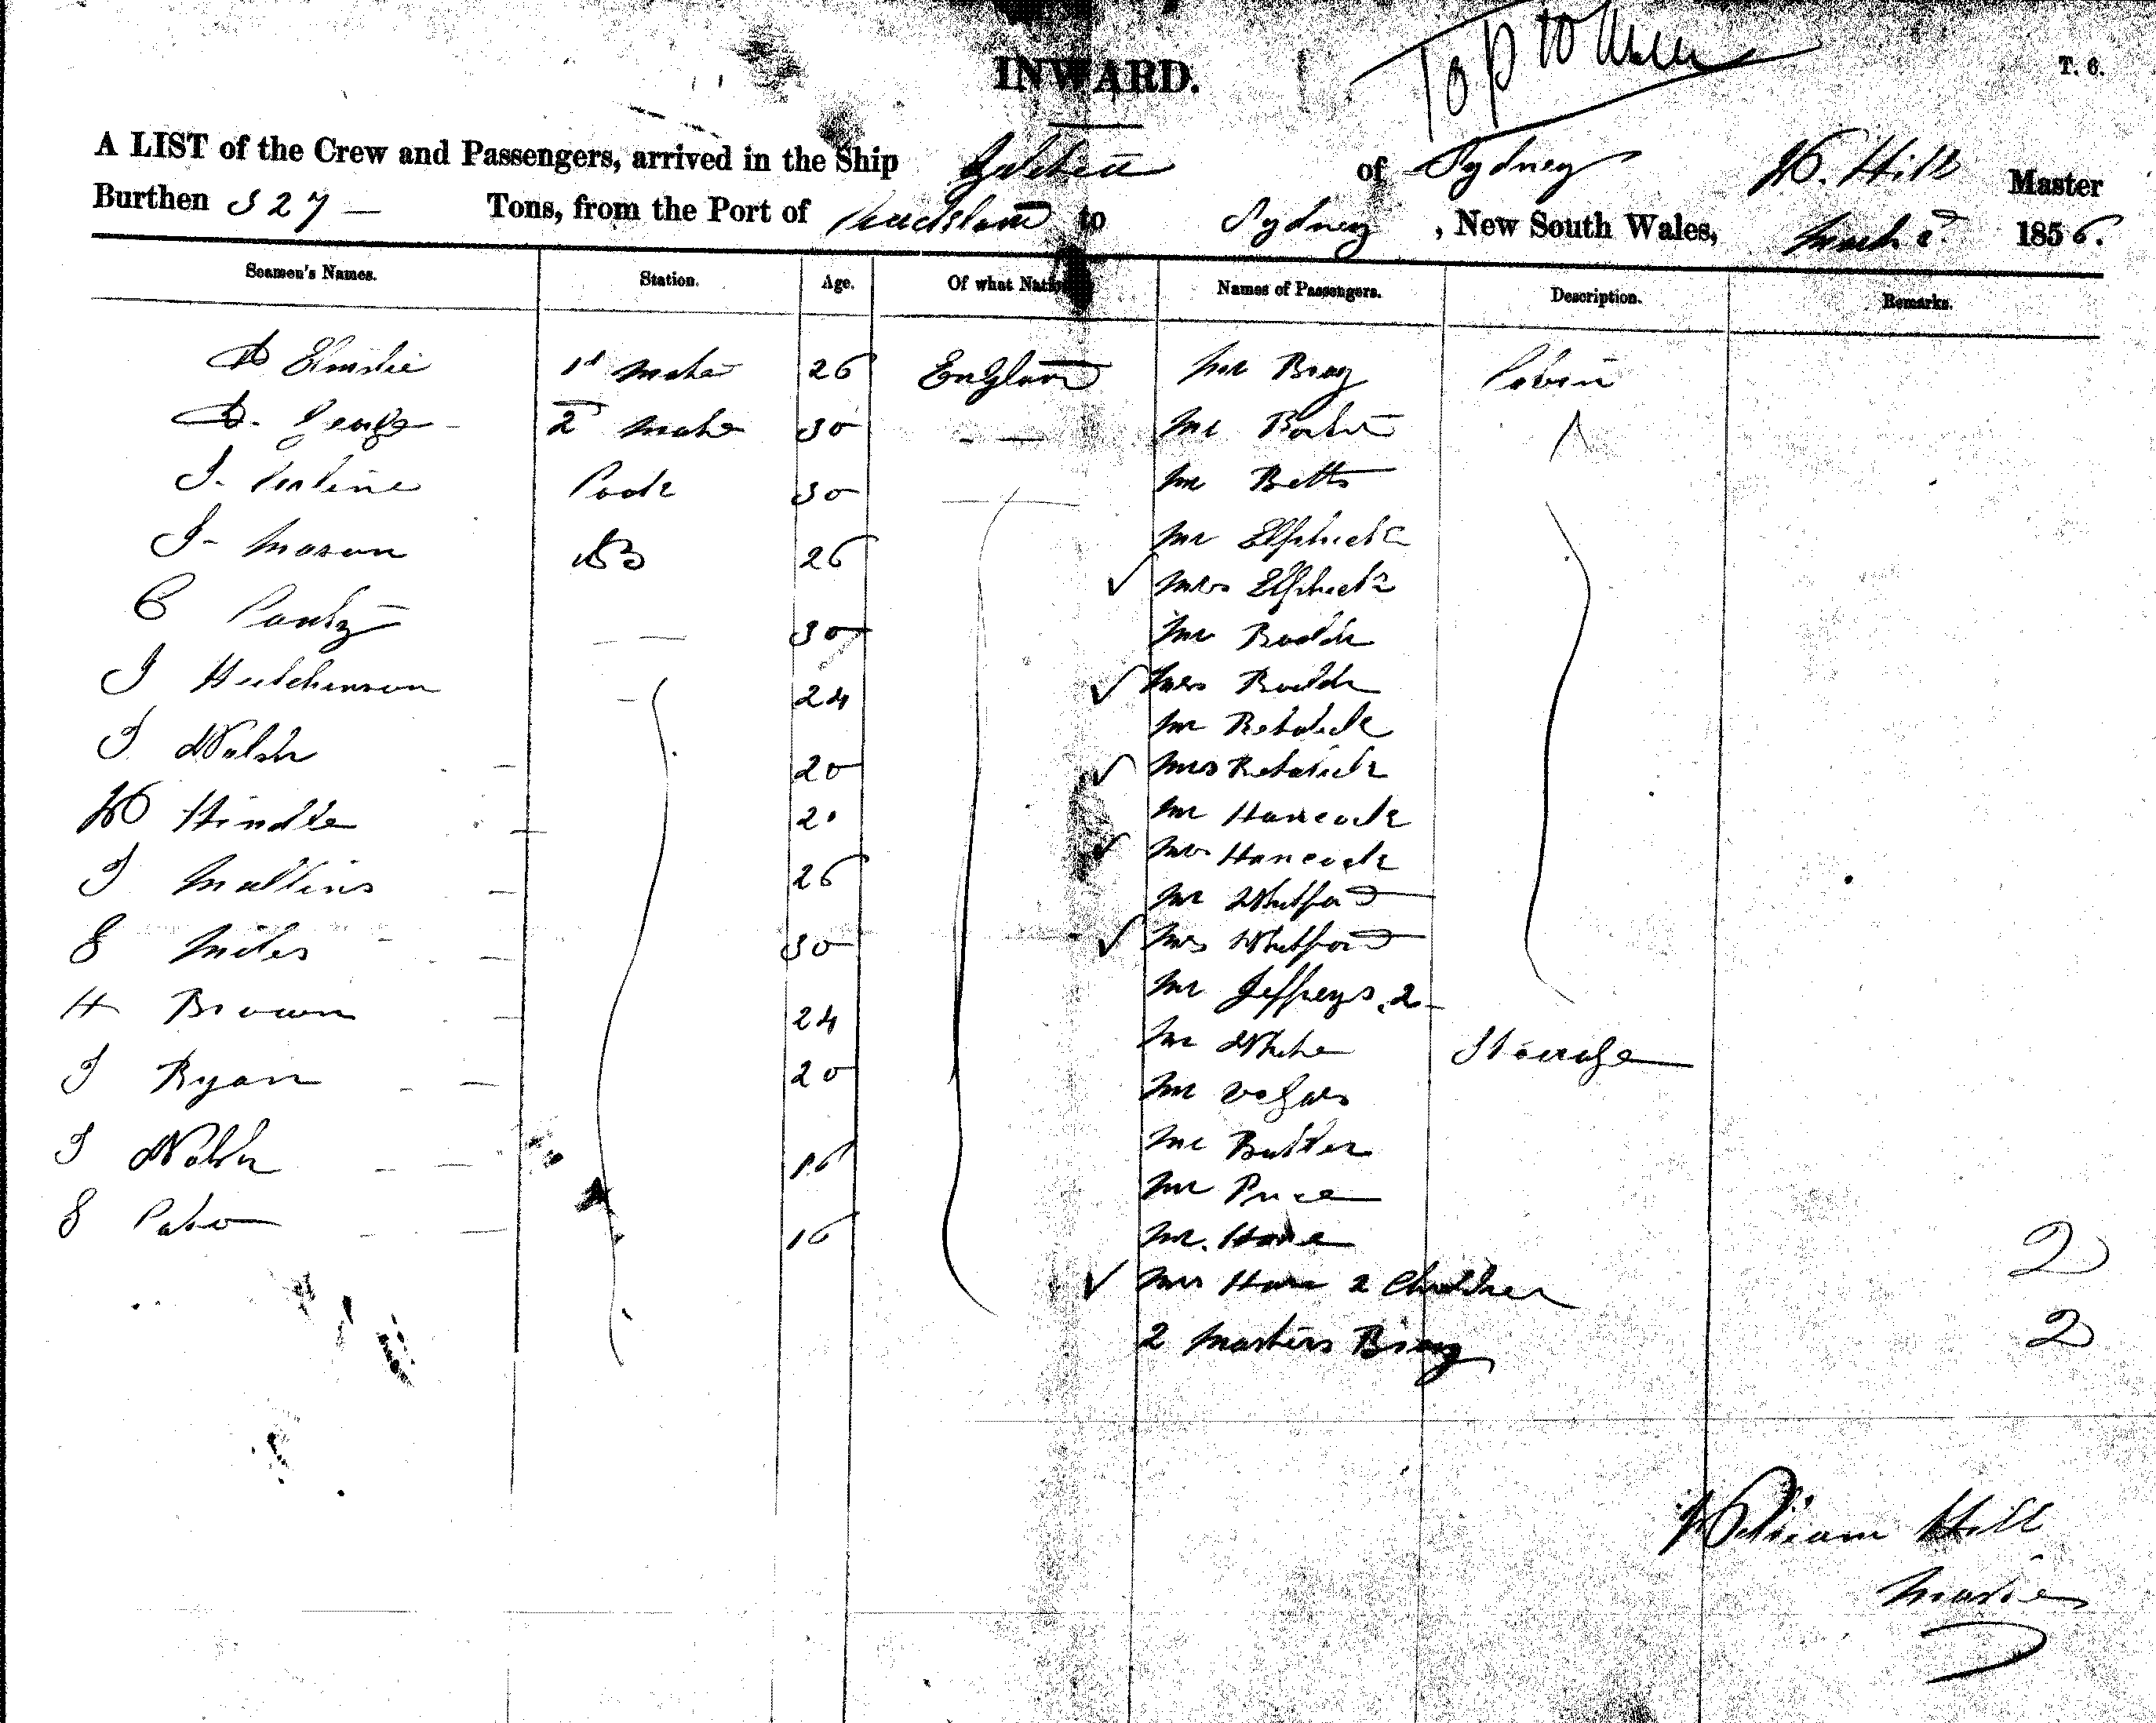 INWARD.
T. 6.
A LIST of the Crew and Passengers, arrived in the Ship of Sydney W. Hill Master
Burthen 327 — Tons, from the Port of to Sydney , New South Wales, March 1856.
Seamen's Names. Station. Age. Of what Nation Names of Passengers. Description. Remarks.
D Elmslie 1st Mate 26 England Mr Bray Cabin
D. 2d Mate 30 — — Mr
J. Cook 30 — Mr Betts
J - Mason AB 26 Mr Elphick
C — 30 Mrs Elphick
J Hutchinson — 24 Mr
J Walsh — 20 Mrs
W Hindle — 20 Mr
J Mullins — 26 Mrs
E Miles — 30 Mr Hancock
H Brown — 24 Mrs Hancock
J Ryan — 20 Mr Whitford
J Walsh — 16 Mrs Whitford
E — 16 Mr Jeffreys. 2
Mr White Steerage
Mr
Mr Butler
Mr Price
Mr. Hare
Mrs Hare 2 Children 2
2 Masters Bray 2
William Hill
Master